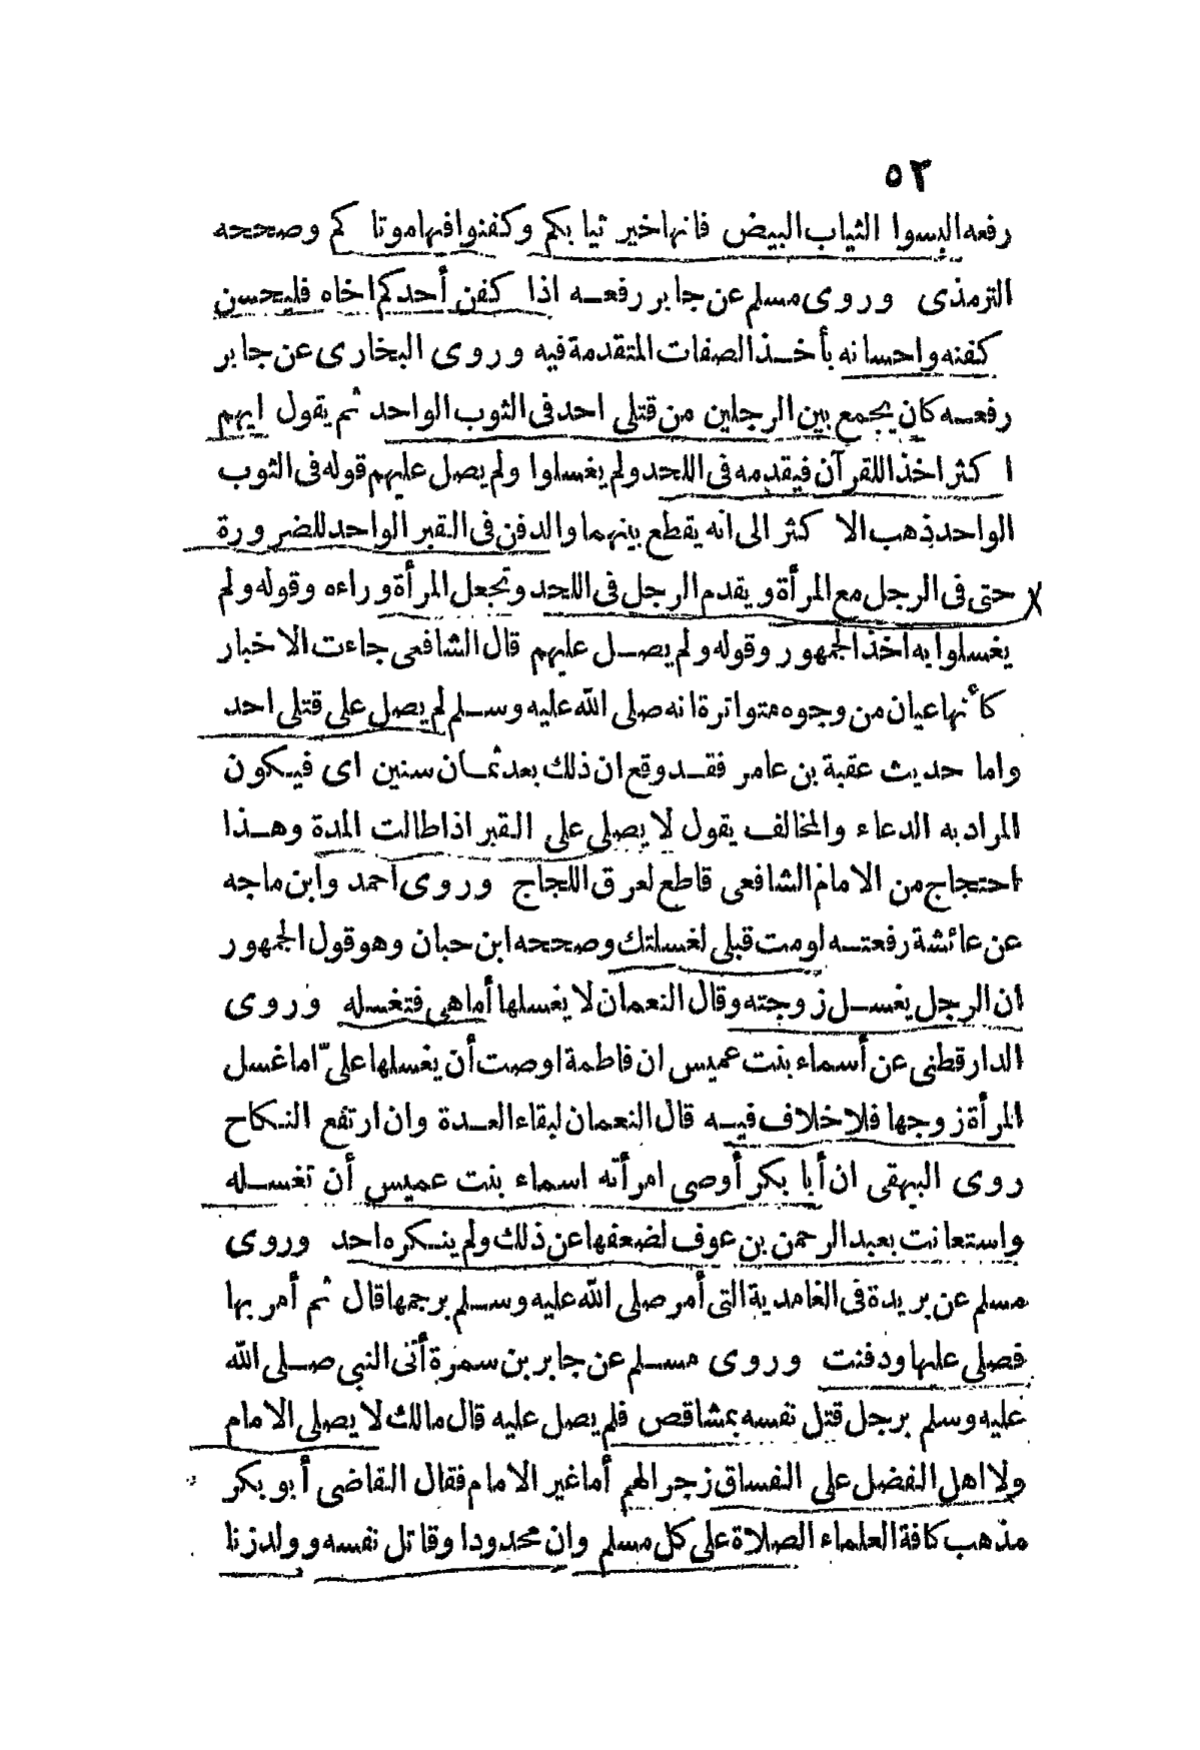 ٥٣
رفعه البسوا الثياب البيض فانها خير ثيابكم وكفنوا فيها موتاكم وصححه
الترمذى وروى مسلم عن جابر رفعه اذا كفن أحدكم اخاه فليحسن
كفنه واحسانه بأخذ الصفات المتقدمة فيه وروى البخارى عن جابر
رفعه كان يجمع بين الرجلين من قتلى احد فى الثوب الواحد ثم يقول ايهم
اكثر اخذا للقرآن فيقدمه فى اللحد ولم يغسلوا ولم يصل عليهم قوله فى الثوب
الواحد ذهب الاكثر الى انه يقطع بينهما والدفن فى القبر الواحد للضرورة
حتى فى الرجل مع المرأة ويقدم الرجل فى اللحد وتجعل المرأة وراءه وقوله ولم
يغسلوا به اخذ الجمهور وقوله ولم يصل عليهم قال الشافعى جاءت الاخبار
كأنها عيان من وجوه متواترة انه صلى الله عليه وسلم لم يصل على قتلى احد
واما حديث عقبة بن عامر فقد وقع ان ذلك بعد ثمان سنين اى فيكون
المراد به الدعاء والمخالف يقول لا يصلى على القبر اذا طالت المدة وهذا
احتجاج من الامام الشافعى قاطع لعرق اللجاج وروى احمد وابن ماجه
عن عائشة رفعته لو مت قبلى لغسلتك وصححه ابن حبان وهو قول الجمهور
ان الرجل يغسل زوجته وقال النعمان لا يغسلها أما هى فتغسله وروى
الدارقطنى عن أسماء بنت عميس ان فاطمة اوصت أن يغسلها علىّ اما غسل
المرأة زوجها فلا خلاف فيه قال النعمان لبقاء العدة وان ارتفع النكاح
روى البيهقى ان أبا بكر أوصى امرأته اسماء بنت عميس أن تغسله
واستعانت بعبد الرحمن بن عوف لضعفها عن ذلك ولم ينكره احد وروى
مسلم عن بريدة فى الغامدية التى أمر صلى الله عليه وسلم برجمها قال ثم أمر بها
فصلى عليها ودفنت وروى مسلم عن جابر بن سمرة أتى النبي صلى الله
عليه وسلم برجل قتل نفسه بمشاقص فلم يصل عليه قال مالك لا يصلى الامام
ولا اهل الفضل على الفساق زجرا لهم أما غير الامام فقال القاضى أبو بكر
مذهب كافة العلماء الصلاة على كل مسلم وان محدودا وقاتل نفسه وولد زنا